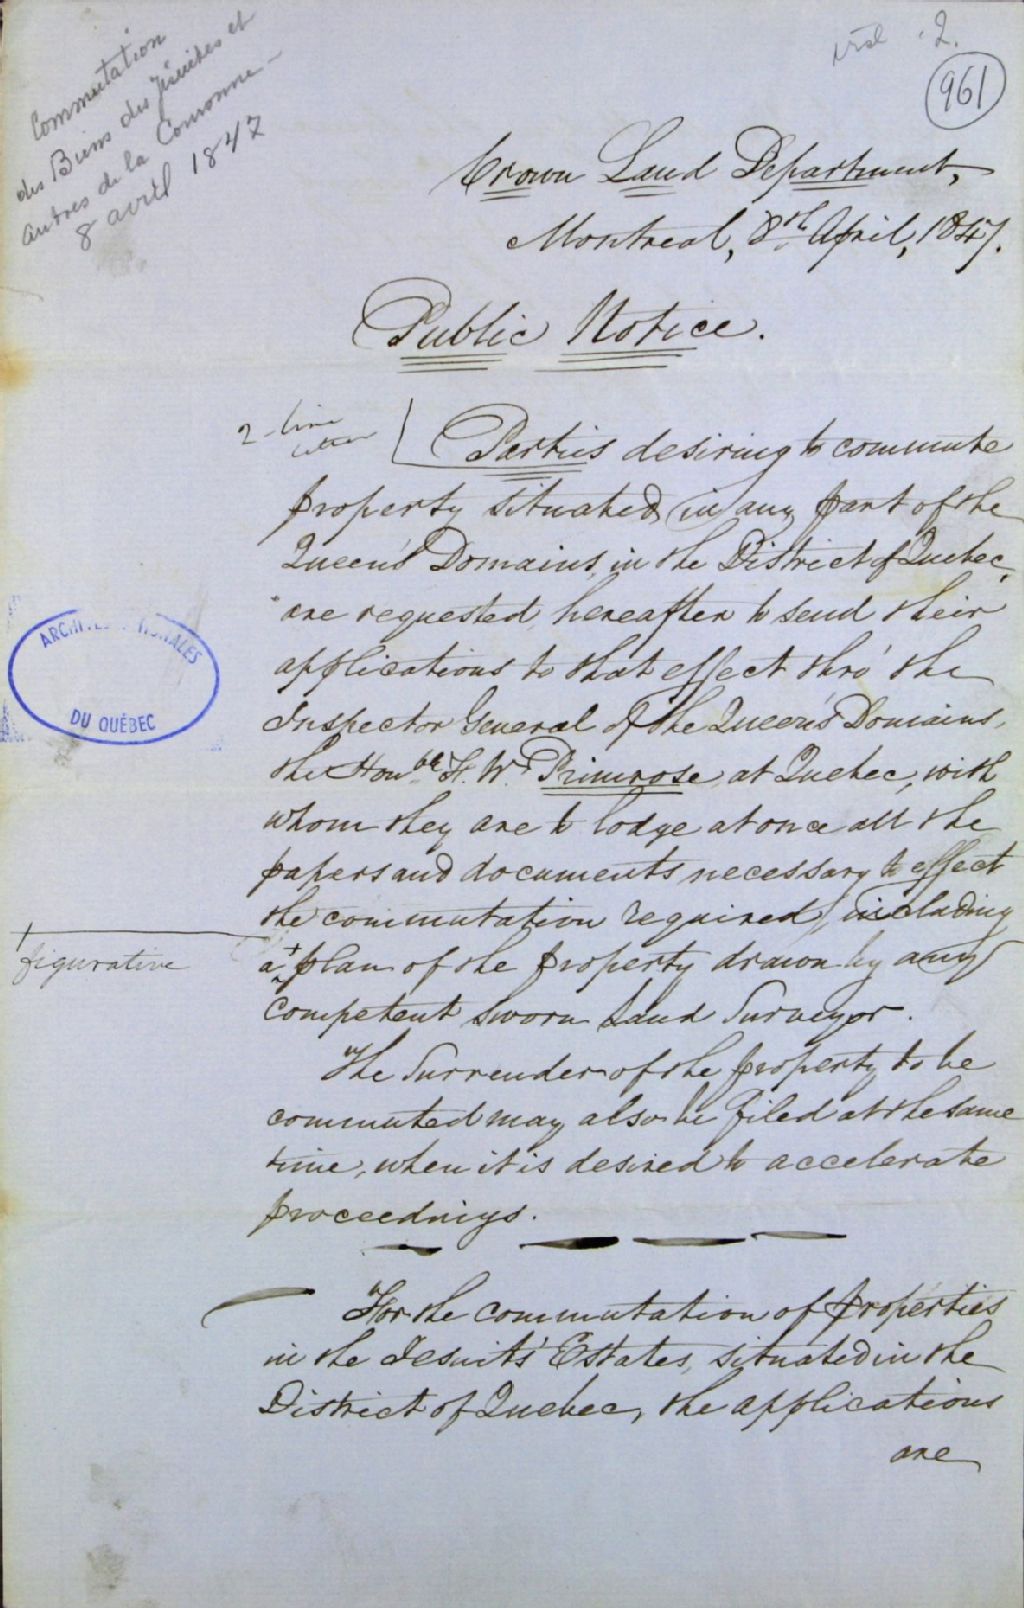 Commutation
des Biens des Jésuites et
autres de la Couronne -
8 avril 1847
vol. 2.
961
Crown Land Department,
Montreal, 8th April, 1847.
Public Notice.
2-line
letter
Parties desiring to commute
property situated, in any part of the
Queen's Domains, in the District of Quebec,
are requested, hereafter to send their
applications to that effect thro' the
Inspector General of the Queen's Domains,
the Honble F. W. Primrose, at Quebec, with
whom they are to lodge at once all the
papers and documents necessary to effect
the commutation required, including
figurative
a plan of the property drawn by any
competent sworn Land Surveyor.
The Surrender of the property to be
commuted may also be filed at the same
time, when it is desired to accelerate
proceedings.
For the commutation of properties
in the Jesuits' Estates, situated in the
District of Quebec, the applications
are
ARCHIVES NATIONALES
DU QUÉBEC